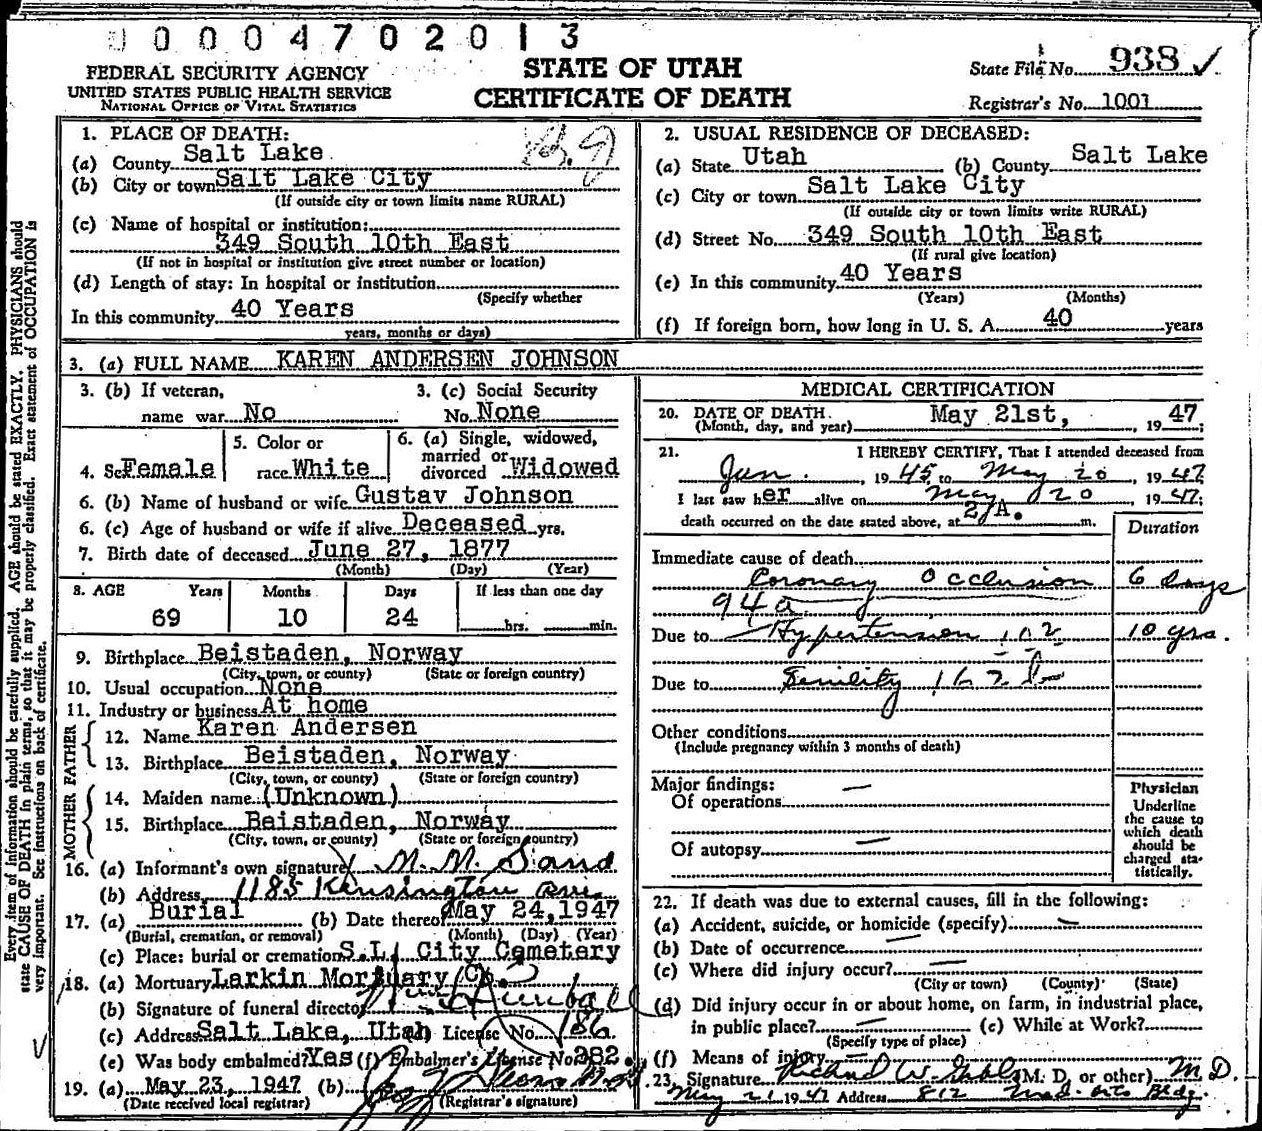 0004702013
FEDERAL SECURITY AGENCY
UNITED STATES PUBLIC HEALTH SERVICE
NATIONAL OFFICE OF VITAL STATISTICS
STATE OF UTAH
CERTIFICATE OF DEATH
State File No. 938 ✓
Registrar's No. 1001
1. PLACE OF DEATH:
(a) County Salt Lake
(b) City or town Salt Lake City
(If outside city or town limits name RURAL)
(c) Name of hospital or institution:
349 South 10th East
(If not in hospital or institution give street number or location)
(d) Length of stay: In hospital or institution
(Specify whether
In this community 40 Years
years, months or days)
2. USUAL RESIDENCE OF DECEASED:
(a) State Utah (b) County Salt Lake
(c) City or town Salt Lake City
(If outside city or town limits write RURAL)
(d) Street No. 349 South 10th East
(If rural give location)
(e) In this community 40 Years
(Years) (Months)
(f) If foreign born, how long in U. S. A. 40 years
3. (a) FULL NAME KAREN ANDERSEN JOHNSON
3. (b) If veteran,
name war No
3. (c) Social Security
No. None
4. Sex Female
5. Color or
race White
6. (a) Single, widowed,
married or
divorced Widowed
6. (b) Name of husband or wife Gustav Johnson
6. (c) Age of husband or wife if alive Deceased yrs.
7. Birth date of deceased June 27, 1877
(Month) (Day) (Year)
8. AGE Years Months Days If less than one day
69 10 24 hrs. min.
9. Birthplace Beistaden, Norway
(City, town, or county) (State or foreign country)
10. Usual occupation None
11. Industry or business At home
FATHER
12. Name Karen Andersen
13. Birthplace Beistaden, Norway
(City, town, or county) (State or foreign country)
MOTHER
14. Maiden name (Unknown)
15. Birthplace Beistaden, Norway
(City, town, or county) (State or foreign country)
16. (a) Informant's own signature M. M. Sand
(b) Address 1185 Kensington Ave
17. (a) Burial (b) Date thereof May 24, 1947
(Burial, cremation, or removal) (Month) (Day) (Year)
(c) Place: burial or cremation S.L. City Cemetery
18. (a) Mortuary Larkin Mortuary Co.
(b) Signature of funeral director
(c) Address Salt Lake, Utah (d) License No. 186
(e) Was body embalmed? Yes (f) Embalmer's License No. 382.
19. (a) May 23, 1947 (b)
(Date received local registrar) (Registrar's signature)
MEDICAL CERTIFICATION
20. DATE OF DEATH May 21st, 1947;
(Month, day, and year)
21. I HEREBY CERTIFY, That I attended deceased from
Jan. , 1945, to May 20 , 1947.
I last saw her alive on May 20 1947;
death occurred on the date stated above, at 2 A. m.
Duration
Immediate cause of death
Coronary Occlusion 6 days
94a
Due to Hypertension 102 10 yrs.
Due to Senility 162 b
Other conditions
(Include pregnancy within 3 months of death)
Major findings:
Of operations —
Of autopsy —
Physician
Underline
the cause to
which death
should be
charged sta-
tistically.
22. If death was due to external causes, fill in the following:
(a) Accident, suicide, or homicide (specify) —
(b) Date of occurrence —
(c) Where did injury occur? —
(City or town) (County) (State)
(d) Did injury occur in or about home, on farm, in industrial place,
in public place? — (e) While at Work?
(Specify type of place)
(f) Means of injury —
23. Signature Richard W. (M. D. or other) M.D.
May 21 1947 Address 812 Med. Arts Bldg.
Every item of information should be carefully supplied. AGE should be stated EXACTLY. PHYSICIANS should
state CAUSE OF DEATH in plain terms, so that it may be properly classified. Exact statement of OCCUPATION is
very important. See instructions on back of certificate.